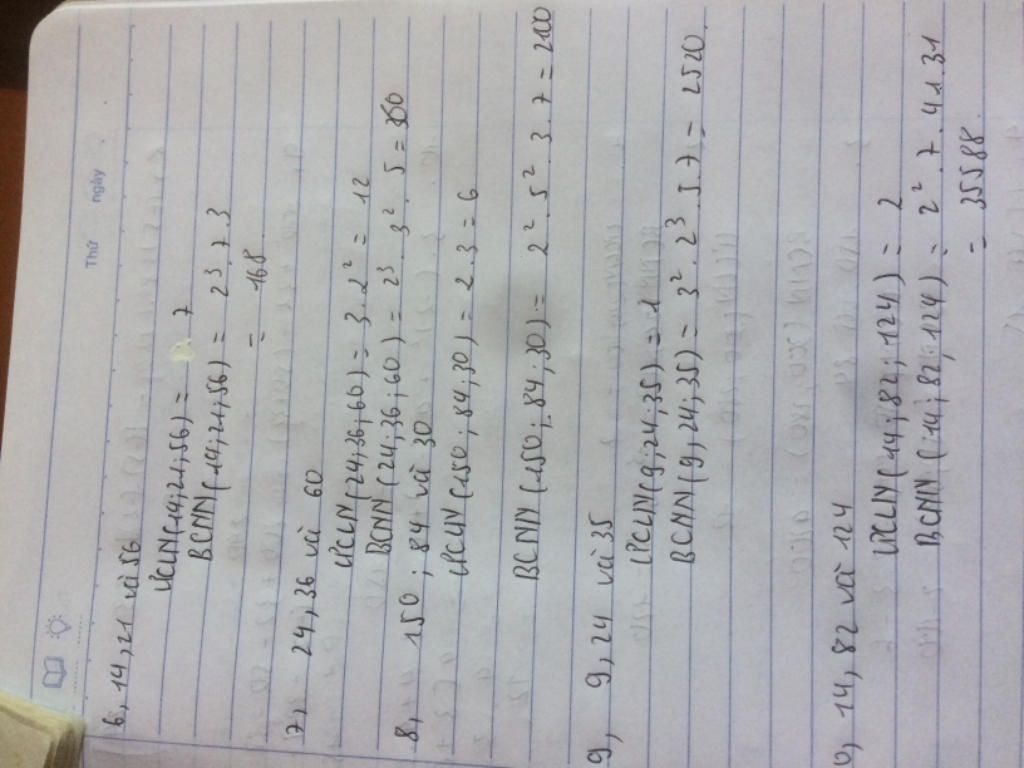 Thứ ngày
6, 14, 21 và 56
ƯCLN(14, 21, 56) = 7
BCNN(14, 21, 56) = 2³. 7. 3
= 168
7, 24, 36 và 60
ƯCLN(24, 36, 60) = 3. 2² = 12
BCNN(24, 36, 60) = 2³. 3². 5 = 360
8, 150; 84 và 30
ƯCLN(150; 84; 30) = 2. 3 = 6
BCNN(150; 84; 30) = 2². 5². 3. 7 = 2100
9, 9, 24 và 35
ƯCLN(9, 24, 35) = 1
BCNN(9, 24, 35) = 3². 2³. 5. 7 = 2520
0, 14, 82 và 124
ƯCLN(14; 82; 124) = 2
BCNN(14; 82; 124) = 2². 7. 41. 31
= 35588